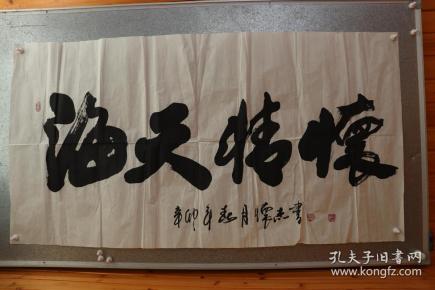 海天情懷
辛卯年春月懷志書
孔夫子旧书网
www.kongfz.com